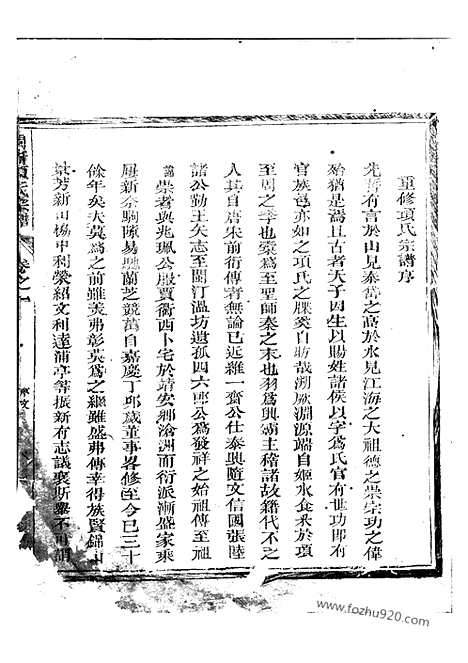 重修項氏宗譜序
先哲有言於山見泰嵩之高於水見江海之大祖德之崇宗功之偉
殆猶是焉且古者天子因生以賜姓諸侯以字爲氏官有世功即有
官族邑亦如之項氏之牒奚自昉哉溯厥淵源端自姬水食釆於項
至周之季也橐爲至聖師秦之末也羽爲興霸主稽諸故籍代不乏
人其自唐宋前衍傳者無論已近維一齋公仕泰興隨文信國張陸
諸公勤王矢志至閩汀溫坊遺孤四六郎公爲發祥之始祖傳至祖
崇者與兆珮公服賈衢西卜宅於靖安鄉滄洲而衍派漸盛家乘
屢新奈駒隙易馳蘭芝競萬自嘉慶丁邱歲董事畧修迄今已三十
餘年矣夫莫爲之前雖美弗彰莫爲之繼雖盛弗傳幸得族賢錦山
景芳新山楊中利榮紹文利達浦亭等振新有志議襄斯舉不可謂
項氏宗譜
卷之一
序文
www.fozhu920.com